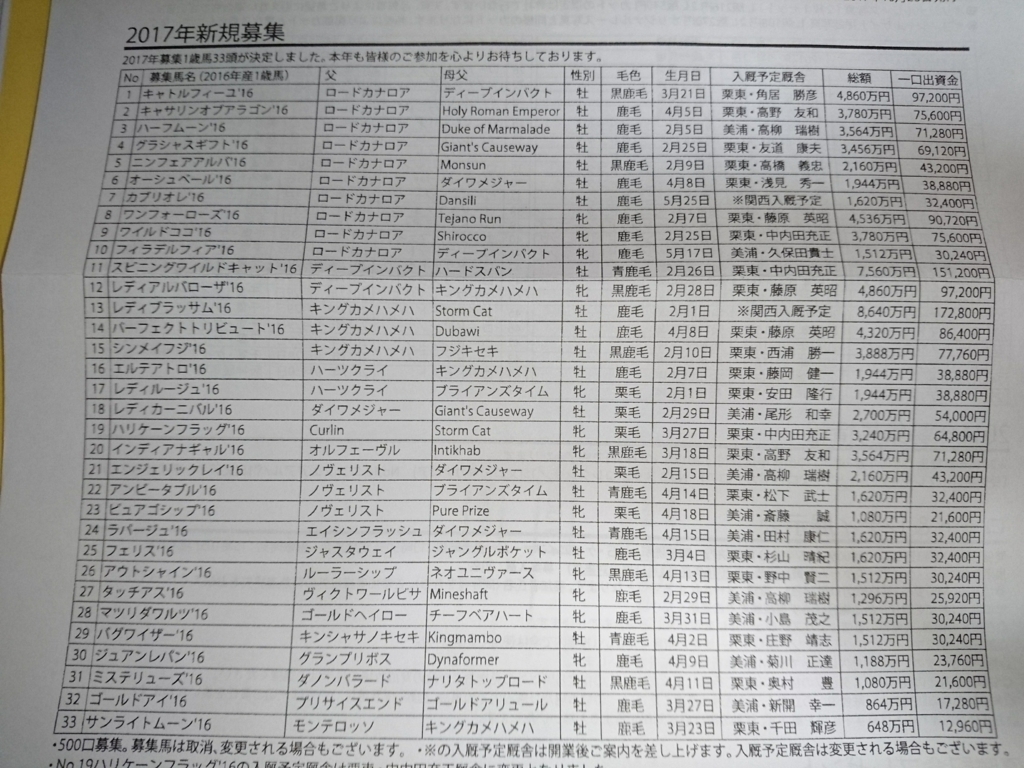 2017年新規募集
2017年募集1歳馬33頭が決定しました。本年も皆様のご参加を心よりお待ちしております。
No 募集馬名(2016年産1歳馬) 父 母父 性別 毛色 生月日 入厩予定厩舎 総額 一口出資金
1 キャトルフィーユ'16 ロードカナロア ディープインパクト 牡 黒鹿毛 3月21日 栗東・角居 勝彦 4,860万円 97,200円
2 キャサリンオブアラゴン'16 ロードカナロア Holy Roman Emperor 牡 鹿毛 4月5日 栗東・高野 友和 3,780万円 75,600円
3 ハーフムーン'16 ロードカナロア Duke of Marmalade 牡 鹿毛 2月5日 美浦・高柳 瑞樹 3,564万円 71,280円
4 グラシャスギフト'16 ロードカナロア Giant's Causeway 牡 鹿毛 2月25日 栗東・友道 康夫 3,456万円 69,120円
5 ニンフェアアルバ'16 ロードカナロア Monsun 牡 黒鹿毛 2月9日 栗東・高橋 義忠 2,160万円 43,200円
6 オーシュペール'16 ロードカナロア ダイワメジャー 牡 鹿毛 4月8日 栗東・浅見 秀一 1,944万円 38,880円
7 カプリオレ'16 ロードカナロア Dansili 牡 鹿毛 5月25日 ※関西入厩予定 1,620万円 32,400円
8 ワンフォーローズ'16 ロードカナロア Tejano Run 牝 鹿毛 2月7日 栗東・藤原 英昭 4,536万円 90,720円
9 ワイルドココ'16 ロードカナロア Shirocco 牝 鹿毛 2月25日 栗東・中内田充正 3,780万円 75,600円
10 フィラデルフィア'16 ロードカナロア ディープインパクト 牝 鹿毛 5月17日 美浦・久保田貴士 1,512万円 30,240円
11 スピニングワイルドキャット'16 ディープインパクト ハードスパン 牡 青鹿毛 2月26日 栗東・中内田充正 7,560万円 151,200円
12 レディアルバローザ'16 ディープインパクト キングカメハメハ 牝 黒鹿毛 2月28日 栗東・藤原 英昭 4,860万円 97,200円
13 レディブラッサム'16 キングカメハメハ Storm Cat 牡 鹿毛 2月1日 ※関西入厩予定 8,640万円 172,800円
14 パーフェクトトリビュート'16 キングカメハメハ Dubawi 牡 鹿毛 4月8日 栗東・藤原 英昭 4,320万円 86,400円
15 シンメイフジ'16 キングカメハメハ フジキセキ 牡 黒鹿毛 2月10日 栗東・西浦 勝一 3,888万円 77,760円
16 エルテアトロ'16 ハーツクライ キングカメハメハ 牡 鹿毛 2月7日 栗東・藤岡 健一 1,944万円 38,880円
17 レディルージュ'16 ハーツクライ ブライアンズタイム 牝 栗毛 2月1日 栗東・安田 隆行 1,944万円 38,880円
18 レディカーニバル'16 ダイワメジャー Giant's Causeway 牡 栗毛 2月29日 美浦・尾形 和幸 2,700万円 54,000円
19 ハリケーンフラッグ'16 Curlin Storm Cat 牝 栗毛 3月27日 栗東・中内田充正 3,240万円 64,800円
20 インディアナギャル'16 オルフェーヴル Intikhab 牝 黒鹿毛 3月18日 栗東・高野 友和 3,564万円 71,280円
21 エンジェリックレイ'16 ノヴェリスト ダイワメジャー 牡 栗毛 2月15日 美浦・高柳 瑞樹 2,160万円 43,200円
22 アンビータブル'16 ノヴェリスト ブライアンズタイム 牡 青鹿毛 4月14日 栗東・松下 武士 1,620万円 32,400円
23 ピュアゴシップ'16 ノヴェリスト Pure Prize 牝 栗毛 4月18日 美浦・斎藤 誠 1,080万円 21,600円
24 ラバージュ'16 エイシンフラッシュ ダイワメジャー 牡 青鹿毛 4月15日 美浦・田村 康仁 1,620万円 32,400円
25 フェリス'16 ジャスタウェイ ジャングルポケット 牡 鹿毛 3月4日 栗東・杉山 晴紀 1,620万円 32,400円
26 アウトシャイン'16 ルーラーシップ ネオユニヴァース 牝 黒鹿毛 4月13日 栗東・野中 賢二 1,512万円 30,240円
27 タッチアス'16 ヴィクトワールピサ Mineshaft 牝 鹿毛 2月29日 美浦・高柳 瑞樹 1,296万円 25,920円
28 マツリダワルツ'16 ゴールドヘイロー チーフベアハート 牝 鹿毛 3月31日 美浦・小島 茂之 1,512万円 30,240円
29 バグワイザー'16 キンシャサノキセキ Kingmambo 牡 青鹿毛 4月2日 栗東・庄野 靖志 1,512万円 30,240円
30 ジュアンレパン'16 グランプリボス Dynaformer 牝 鹿毛 4月9日 美浦・菊川 正達 1,188万円 23,760円
31 ミステリューズ'16 ダノンバラード ナリタトップロード 牡 黒鹿毛 4月11日 栗東・奥村 豊 1,080万円 21,600円
32 ゴールドアイ'16 プリサイスエンド ゴールドアリュール 牡 鹿毛 3月27日 美浦・新開 幸一 864万円 17,280円
33 サンライトムーン'16 モンテロッソ キングカメハメハ 牡 鹿毛 3月23日 栗東・千田 輝彦 648万円 12,960円
・500口募集。募集馬は取消、変更される場合もございます。・※の入厩予定厩舎は開業後ご案内を差し上げます。入厩予定厩舎は変更される場合もございます。
・No.19ハリケーンフラッグ'16の入厩予定厩舎は栗東・中内田充正厩舎に変更となりました。